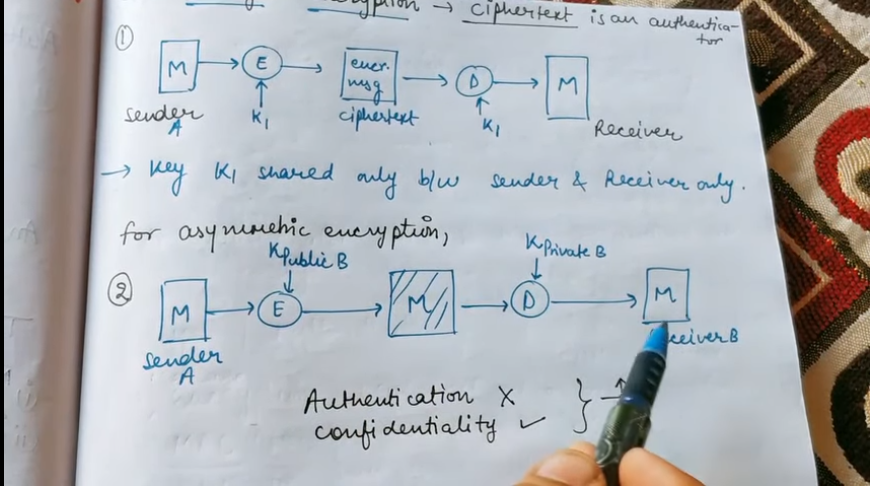 → ciphertext is an authentica-
tor
① M → E → encr. msg → D → M
sender A K1 ciphertext K1 Receiver
→ Key K1 shared only b/w sender & Receiver only.
for asymmetric encryption,
K Public B K Private B
② M → E → M → D → M
sender A
Authentication X
confidentiality ✓